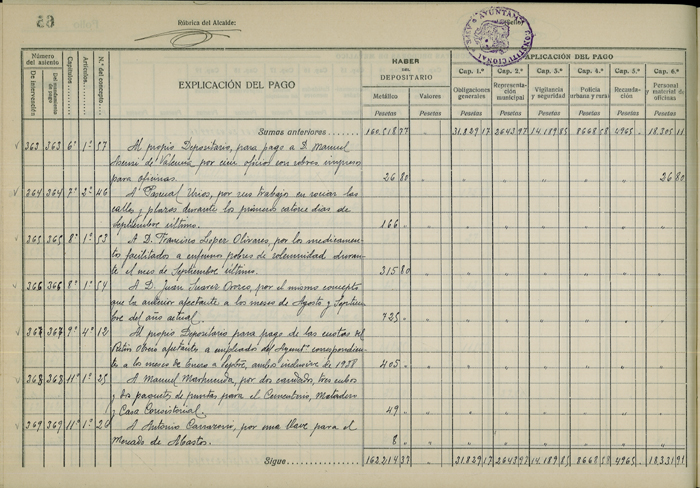 65
Rúbrica del Alcalde:
AYUNTAMIENTO CONSTITUCIONAL
Número del asiento
De intervención
Del mandamiento de pago
Capítulos
Artículos
N.º del concepto
EXPLICACIÓN DEL PAGO
HABER DEL DEPOSITARIO
Metálico
Pesetas
Valores
Pesetas
APLICACIÓN DEL PAGO
Cap. 1.º
Obligaciones generales
Pesetas
Cap. 2.º
Representación municipal
Pesetas
Cap. 3.º
Vigilancia y seguridad
Pesetas
Cap. 4.º
Policía urbana y rural
Pesetas
Cap. 5.º
Recaudación
Pesetas
Cap. 6.º
Personal y material de oficinas
Pesetas
Sumas anteriores 160.518 77 " 31.829 17 2643 97 14.189 85 8668 58 4965 " 18.305 11
363 363 6º 1º 57 Al propio Depositario, para pago a D. Manuel
de Valencia por cien oficios con sobres impresos
para oficinas. 26 80 26 80
364 364 7º 2º 46 A Pascual Urios, por sus trabajos en rociar las
calles y plazas durante los primeros catorce días de
Septiembre último. 166 "
365 365 8º 1º 53 A D. Francisco López Olivares, por los medicamen-
tos facilitados a enfermos pobres de solemnidad duran-
te el mes de Septiembre último. 315 80
366 366 8º 1º 54 A D. Juan Suarez Orozco, por el mismo concepto
que la anterior afectante a los meses de Agosto y Septiem-
bre del año actual. 725 "
367 367 9º 4º 12 Al propio Depositario para pago de las cuotas del
Retiro Obrero afectantes a empleados del Ayunto correspondien-
te a los meses de Enero a Sepbre, ambos inclusive de 1938 405 "
368 368 11º 1º 25 A Manuel por dos candados, tres cubos
y dos paquetes de puntas para el Cementerio, Matadero
y Casa Consistorial. 49 "
369 369 11º 1º 20 A Antonio Carrazoni, por una llave para el
Mercado de Abastos. 8 "
Sigue 162.214 37 " 31.829 17 2643 97 14.189 85 8668 58 4965 " 18.331 91